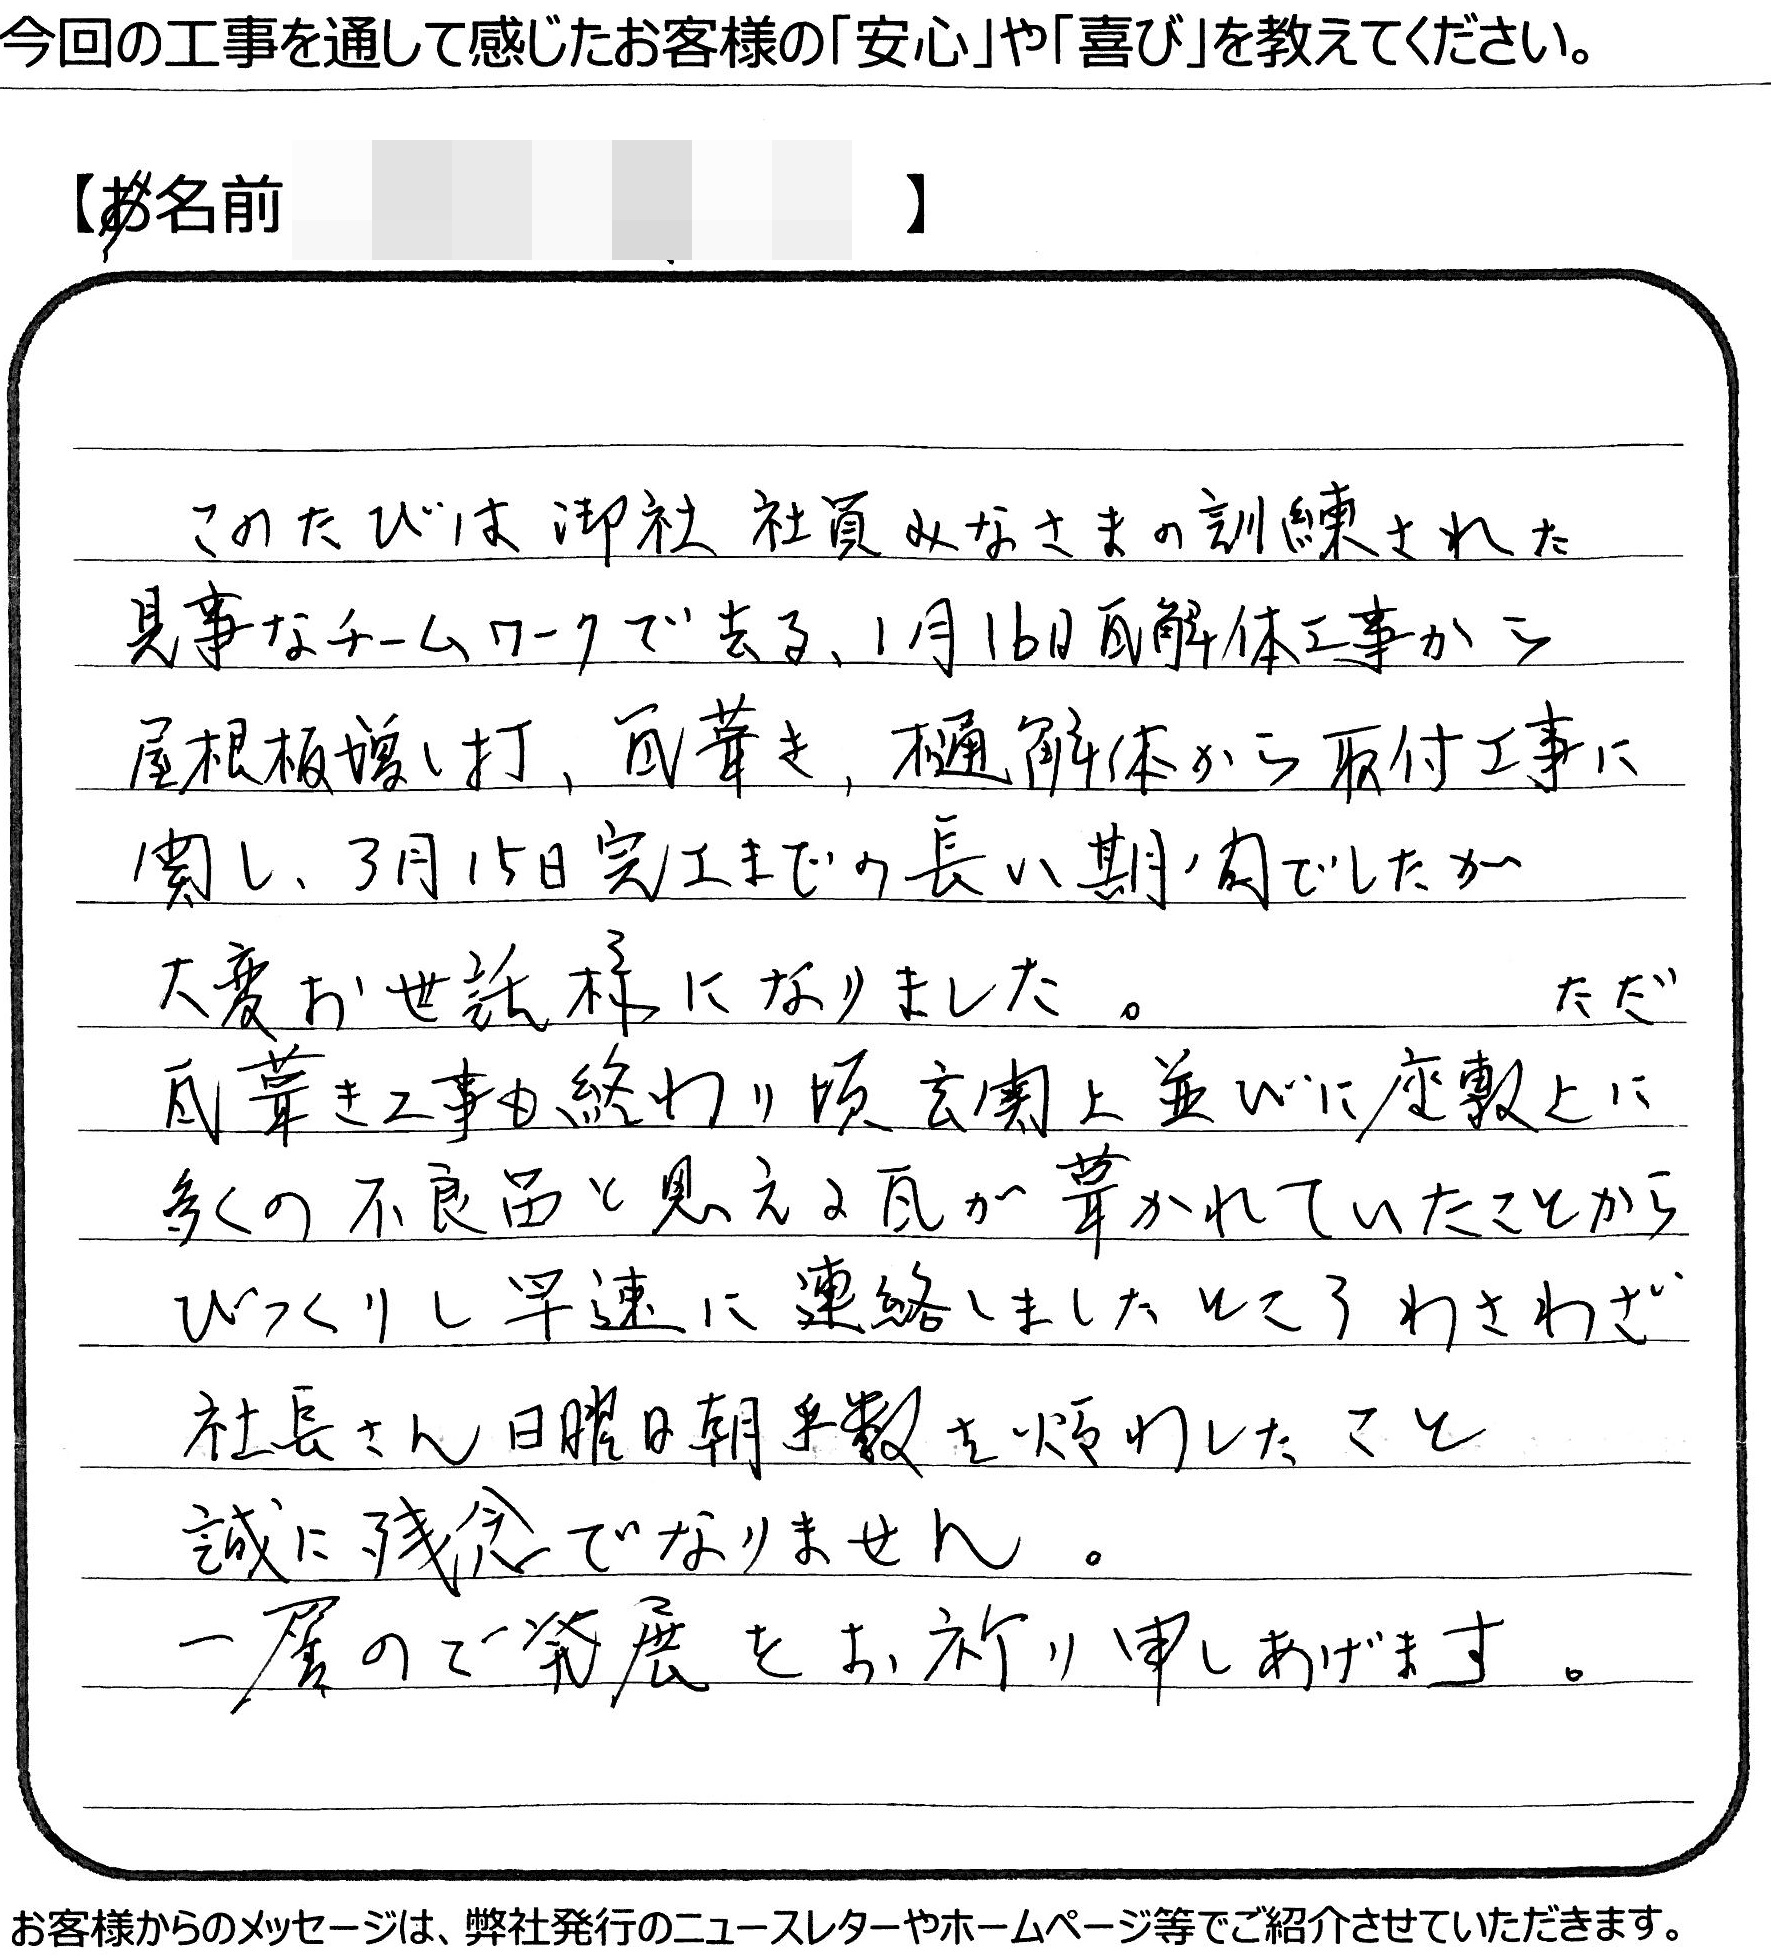 今回の工事を通して感じたお客様の「安心」や「喜び」を教えてください。
【お名前 】
このたびは御社 社員みなさまの訓練された
見事なチームワークで去る、1月16日瓦解体工事から
屋根板増し打、瓦葺き、樋解体から取付工事に
関し、3月15日完工までの長い期間でしたが
大変お世話様になりました。 ただ
瓦葺き工事も終わり頃玄関上並びに座敷上に
多くの不良品と思える瓦が葺かれていたことから
びっくりし早速に連絡しましたところわさわざ
社長さん日曜日朝手数を煩わしたこと
誠に残念でなりません。
一層のご発展をお祈り申しあげます。
お客様からのメッセージは、弊社発行のニュースレターやホームページ等でご紹介させていただきます。